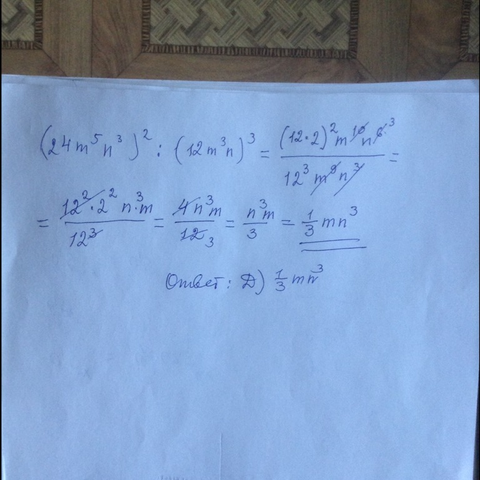 (24m⁵n³)² : (12m³n)³ = (12·2)²m¹⁰n⁶ ³ / 12³m⁹n³ =
= 12²·2² n³·m / 12³ = 4n³m / 12 3 = n³m / 3 = 1/3 mn³
Ответ: Д) 1/3 mn³